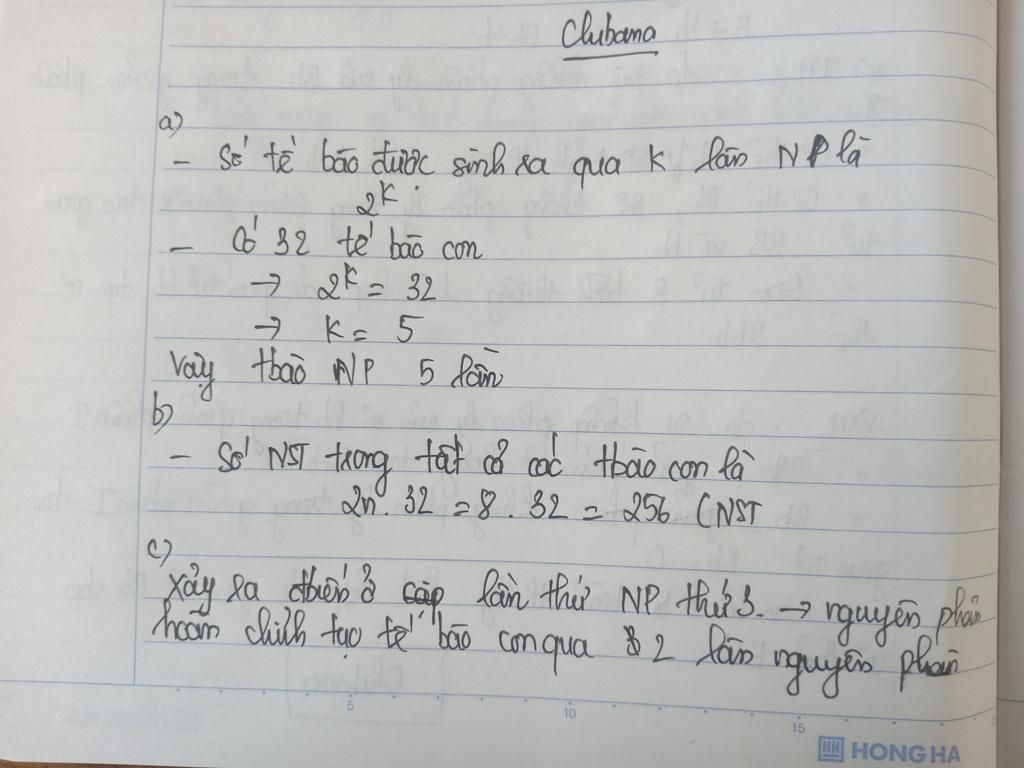 Chubama
a)
- Số tế bào được sinh ra qua K lần NP là
2^K
- Có 32 tế bào con
→ 2^K = 32
→ K = 5
Vậy tbào NP 5 lần
b)
- Số NST trong tất cả các tbào con là
2n . 32 = 8 . 32 = 256 (NST
c)
Xảy ra đbiến ở lần thứ NP thứ 3. → nguyên phân
hoàn chỉnh tạo tế bào con qua 2 lần nguyên phân
5 10 15
HH HONG HA